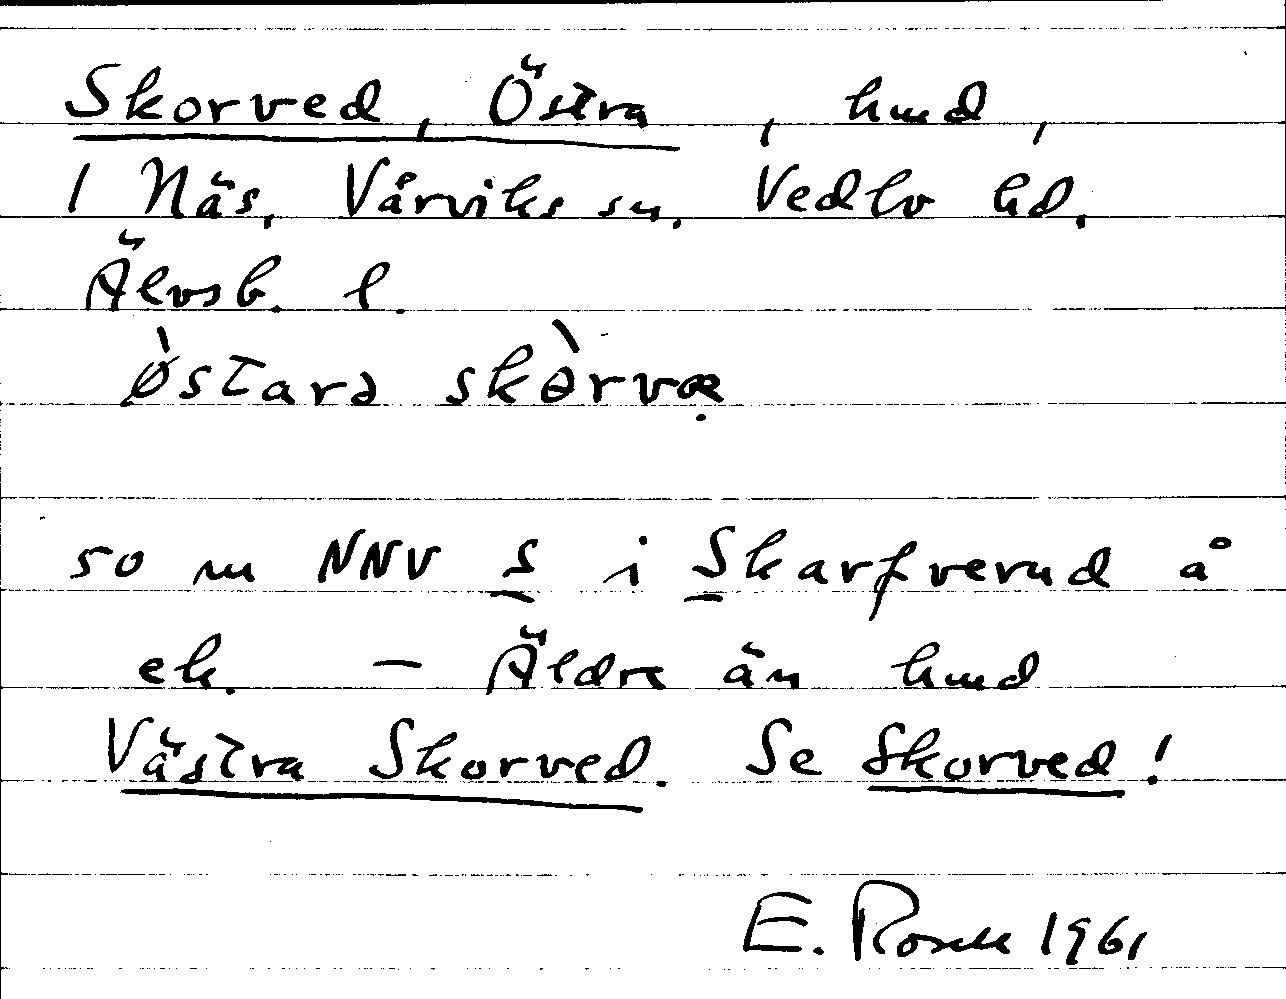 Skorved, Östra, hmd,
1 Näs, Vårviks sn. Vedbo hd.
Älvsb. l.
østarə skɵ̀rvæ
so m NNV S i Skarfverud å
ek. — Äldre än hmd
Västra Skorved. Se Skorved!
E. Rosell 1961